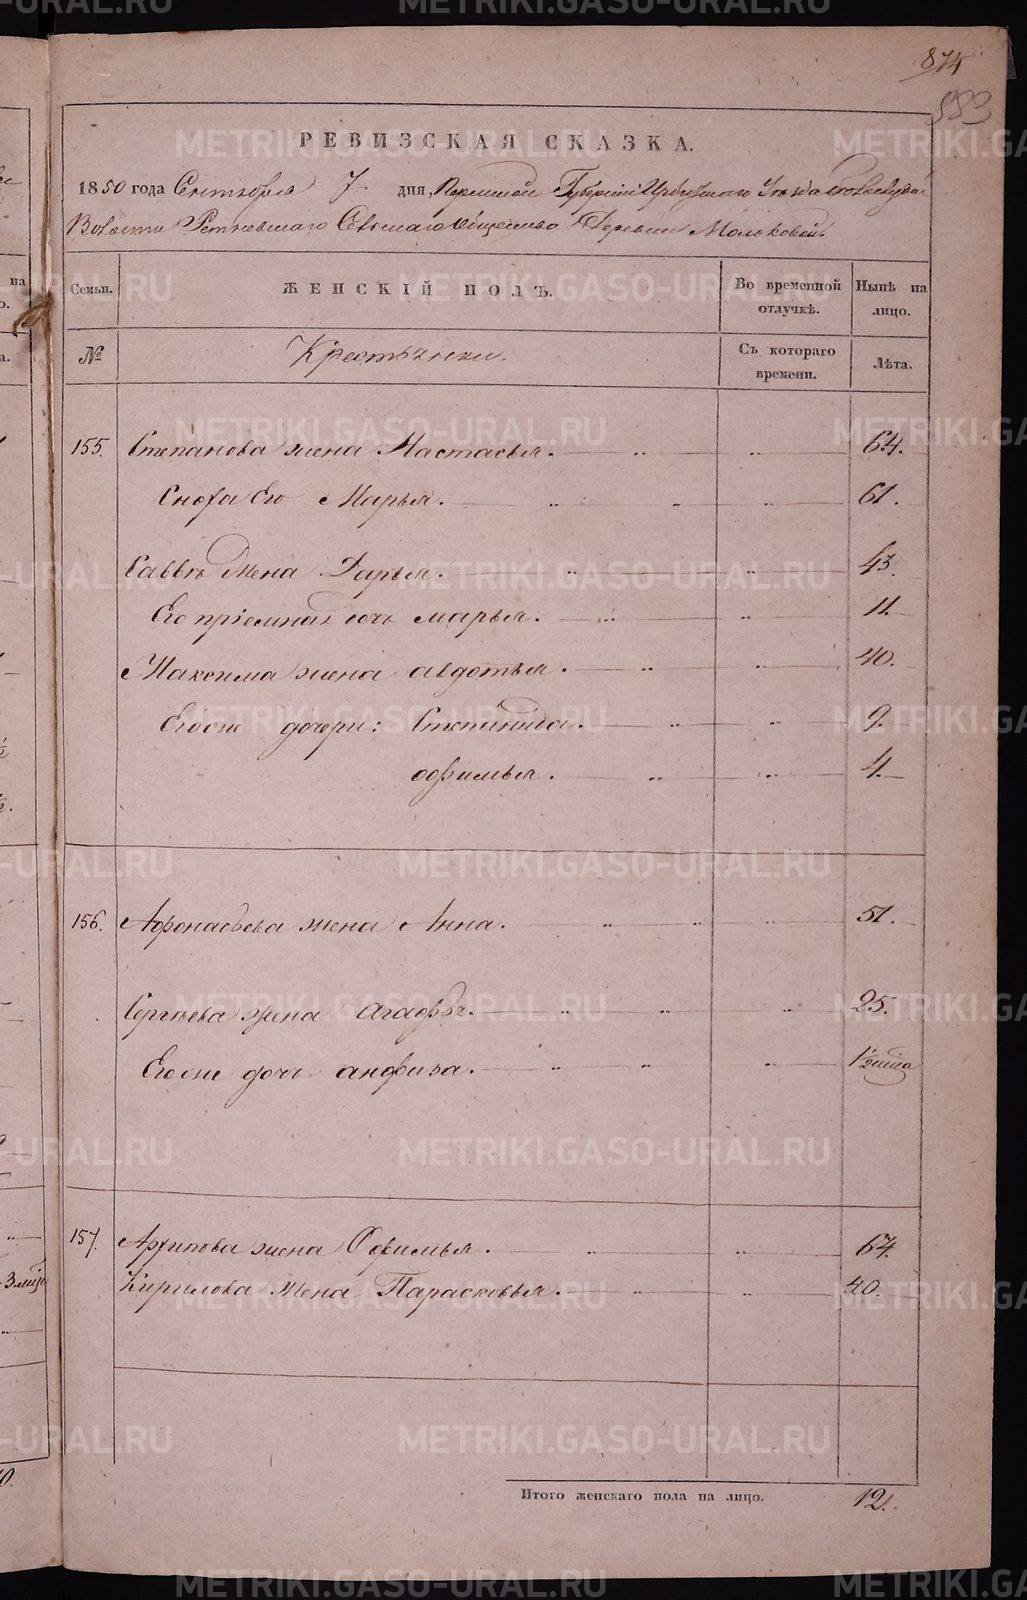 874
883
РЕВИЗСКАЯ СКАЗКА.
1850 года Сентября 7 дня, Пермской Губернiи Ирбитскаго Уѣзда
Волости Сельскаго общества Деревни Молоковой.
Семьи. ЖЕНСКIЙ ПОЛЪ. Во временной отлучкѣ. Нынѣ на лицо.
№ Крестьянки. Съ котораго времени. Лѣта.
155. Степанова жена Настасья. 64.
Сноха Его Марья. 61.
Саввы жена Дарья. 43.
Его прiемная дочь марья. 11.
Максима жена авдотья. 40.
Егоже дочери: Степанида. 9.
офимья. 4.
156. Афонасьева жена Анна. 51.
Сергѣева жена Агафья. 25.
Егоже дочь анфиза. 1/2 года
157. Архипова жена Офимья. 67.
Кирилова жена Парасковья. 40.
Итого женскаго пола на лицо. 12.
METRIKI.GASO-URAL.RU